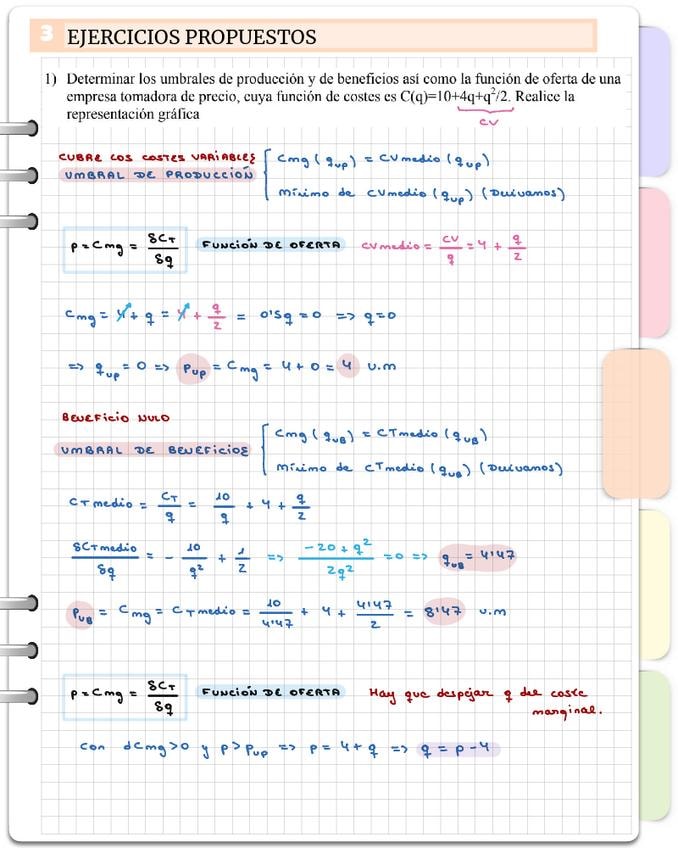 3 EJERCICIOS PROPUESTOS
1) Determinar los umbrales de producción y de beneficios así como la función de oferta de una
empresa tomadora de precio, cuya función de costes es C(q)=10+4q+q²/2. Realice la
representación gráfica
CV
CUBRE LOS COSTES VARIABLES
UMBRAL DE PRODUCCIÓN
Cmg (qup) = CVmedio (qup)
Mínimo de CVmedio (qup) (Derivamos)
p = Cmg = δCT/δq FUNCIÓN DE OFERTA CVmedio = CV/q = 4 + q/2
Cmg = 4 + q = 4 + q/2 = 0'5q = 0 => q=0
=> qup = 0 => Pup = Cmg = 4 + 0 = 4 u.m
BENEFICIO NULO
UMBRAL DE BENEFICIOS
Cmg (qUB) = CTmedio (qUB)
Mínimo de CTmedio (qUB) (Derivamos)
CTmedio = CT/q = 10/q + 4 + q/2
δCTmedio/δq = - 10/q² + 1/2 => -20+q²/2q² = 0 => qUB = 4'47
PUB = Cmg = CTmedio = 10/4'47 + 4 + 4'47/2 = 8'47 u.m
p = Cmg = δCT/δq FUNCIÓN DE OFERTA Hay que despejar q del coste
marginal.
Con dCmg>0 y p>pup => p = 4+q => q = p-4